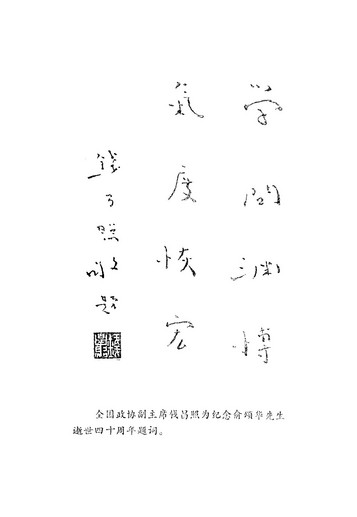 学问渊博
气度恢宏
钱昌照敬题
全国政协副主席钱昌照为纪念俞颂华先生
逝世四十周年题词。